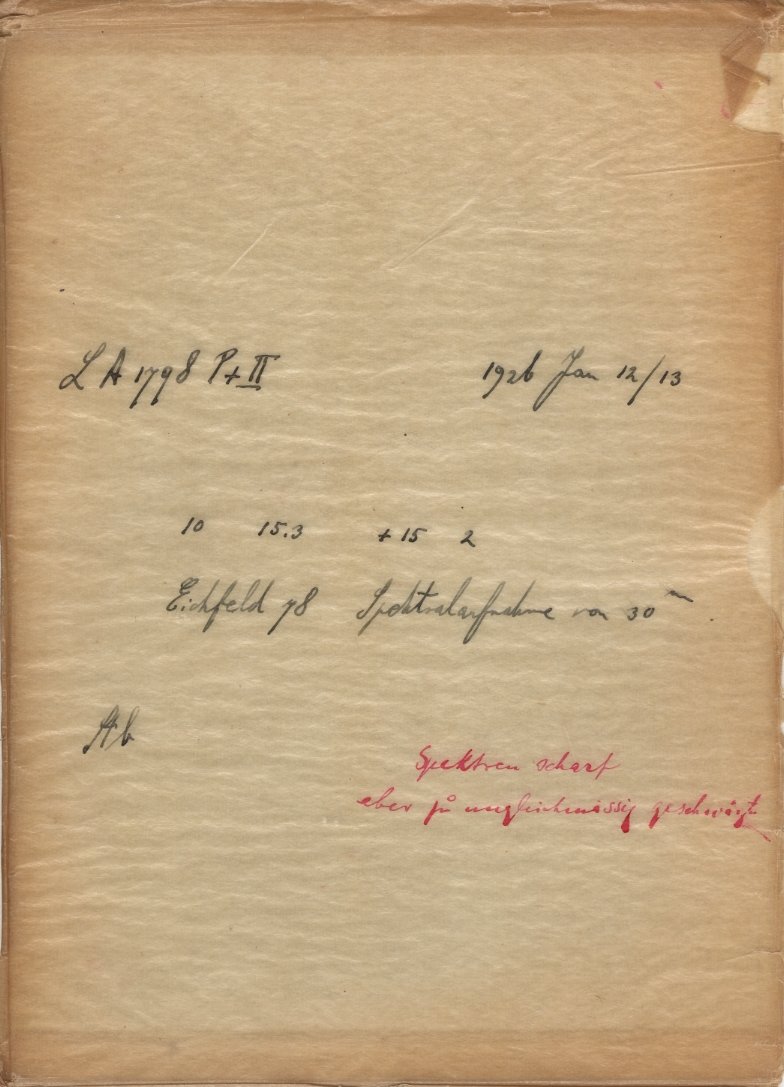 L A 1798 P+II 1926 Jan 12/13
10 15.3 +15 2
Eichfeld 78 Spektralaufnahme von 30 m
Ab
Spektren scharf
aber zu ungleichmässig geschwärzt